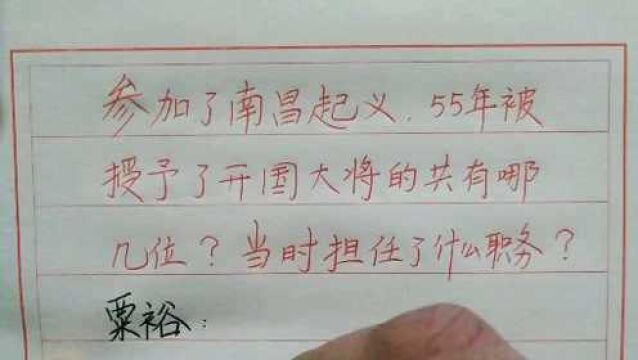 参加了南昌起义.55年被
授予了开国大将的共有哪
几位?当时担任了什么职务?
粟裕: